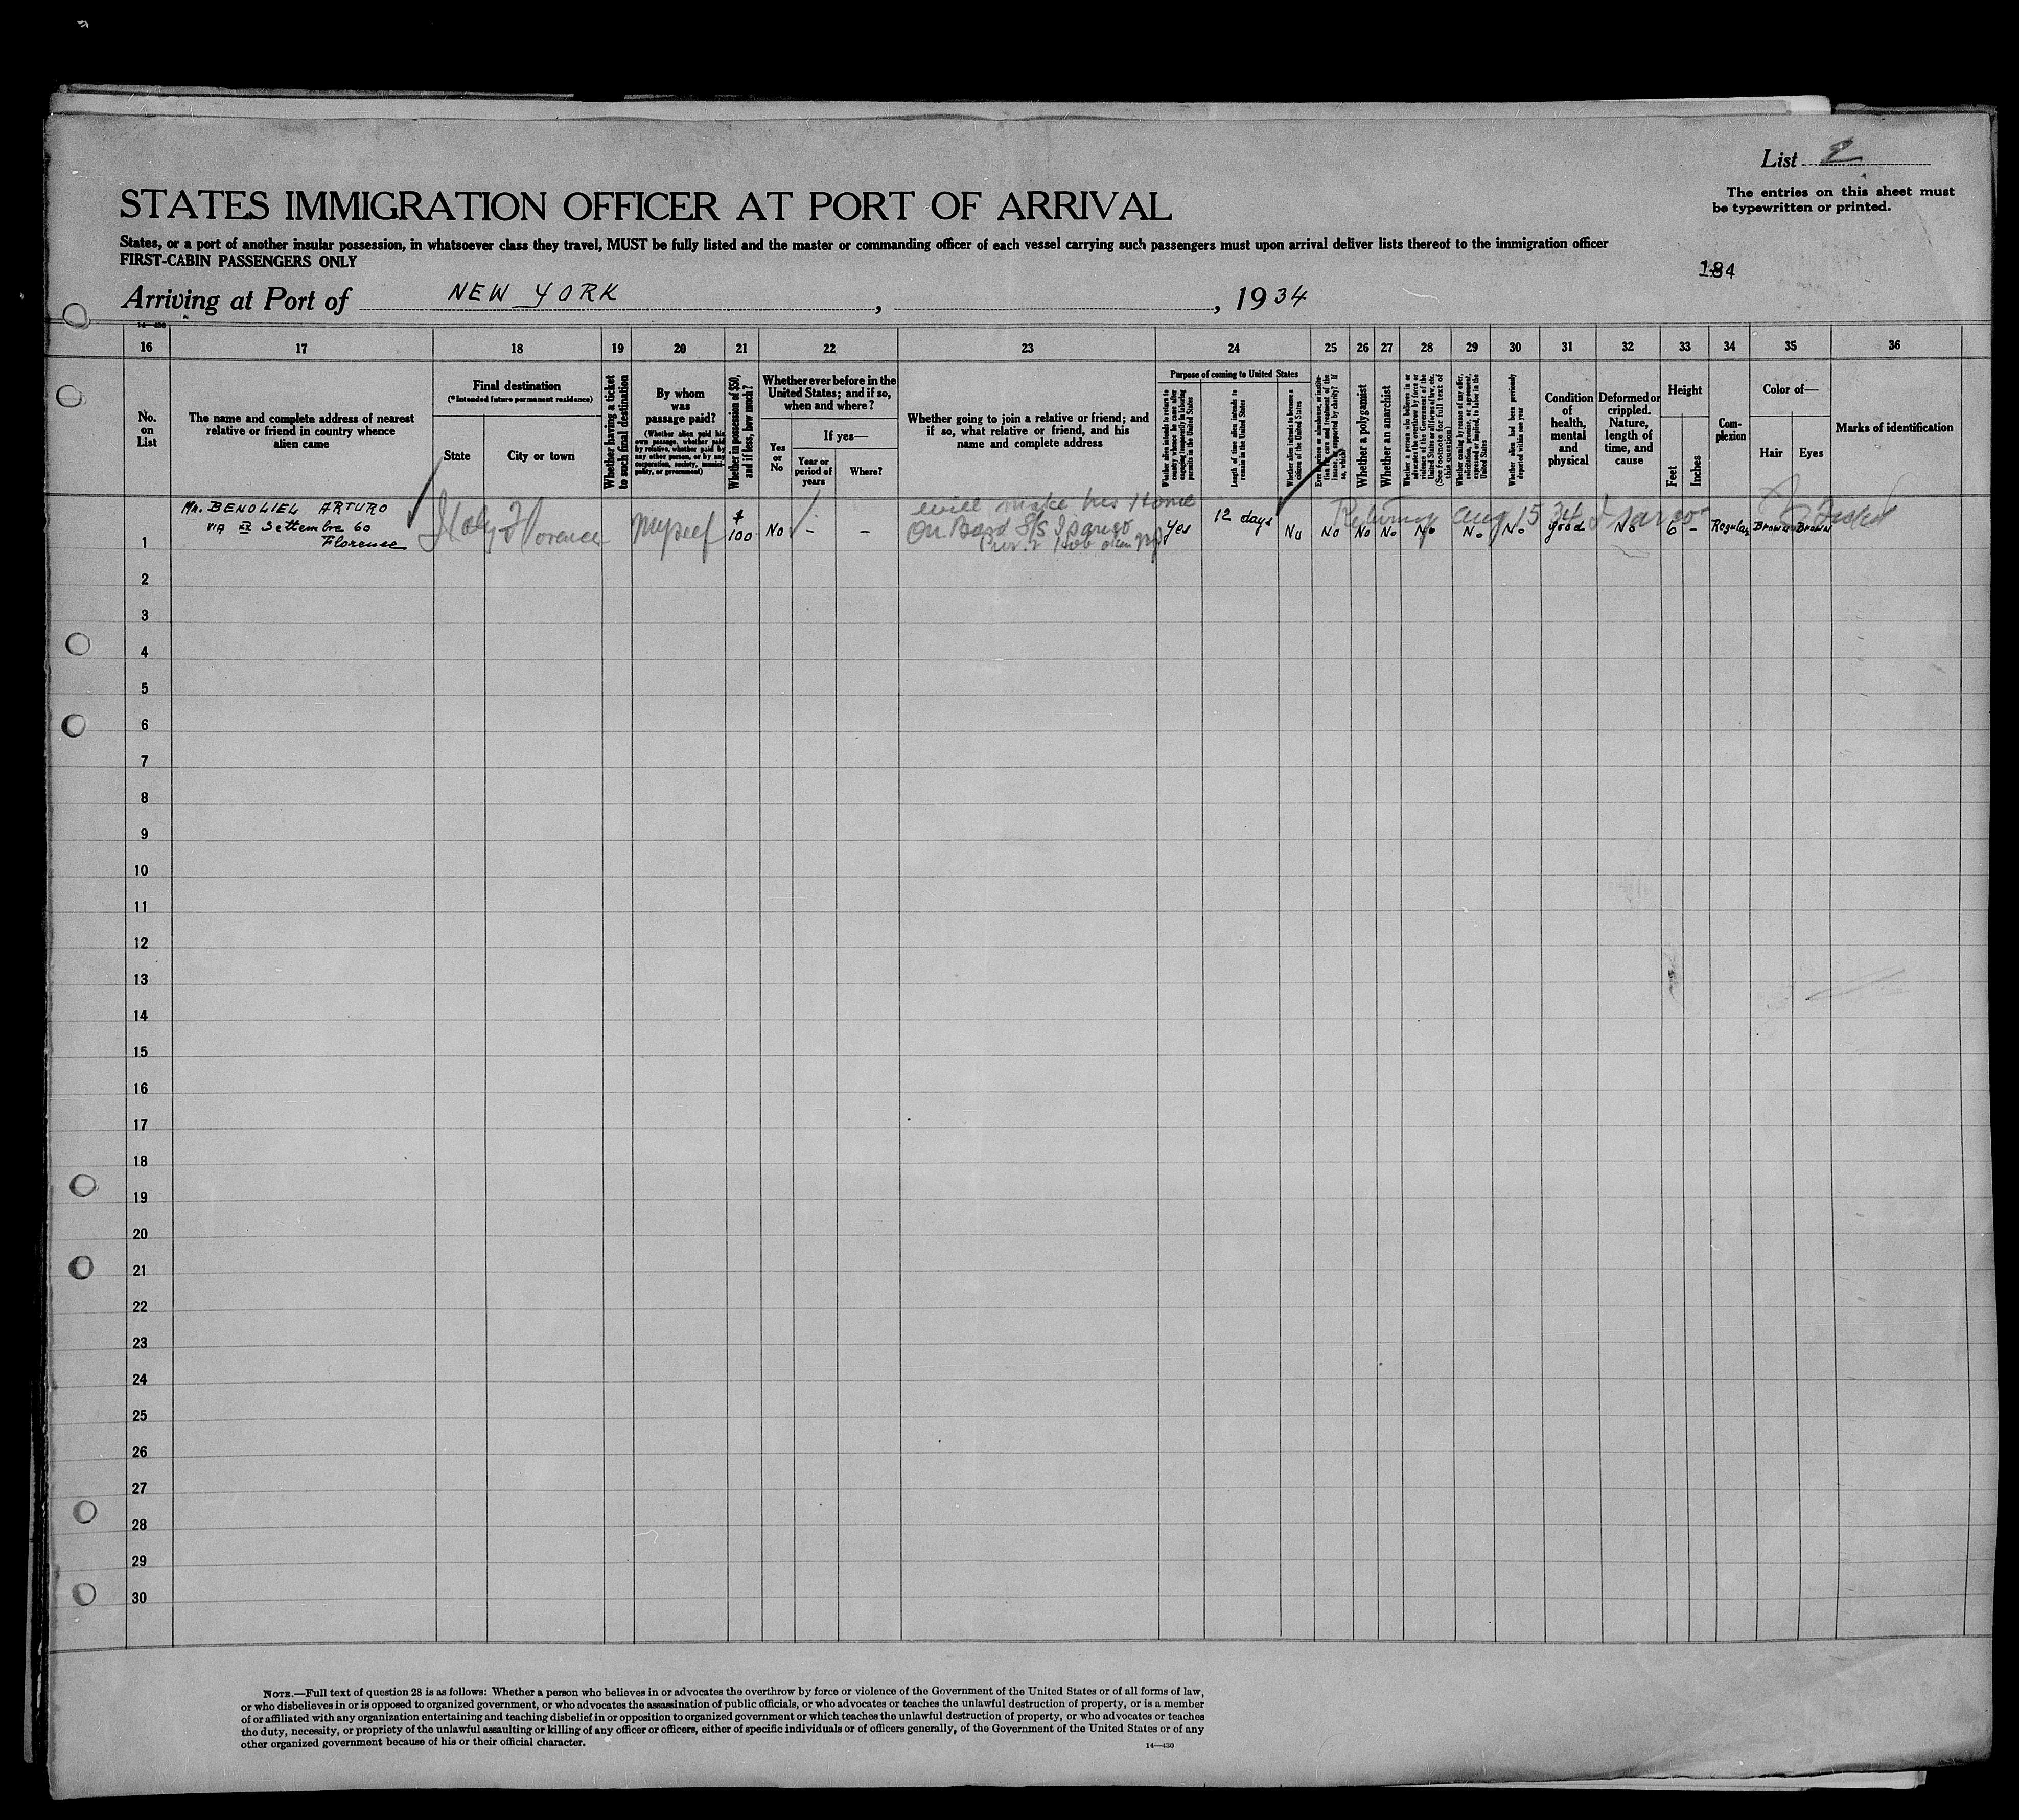 List 2
The entries on this sheet must
be typewritten or printed.
STATES IMMIGRATION OFFICER AT PORT OF ARRIVAL
States, or a port of another insular possession, in whatsoever class they travel, MUST be fully listed and the master or commanding officer of each vessel carrying such passengers must upon arrival deliver lists thereof to the immigration officer
FIRST-CABIN PASSENGERS ONLY
184
Arriving at Port of NEW YORK , , 1934
14—430
16 17 18 19 20 21 22 23 24 25 26 27 28 29 30 31 32 33 34 35 36
No.
on
List
The name and complete address of nearest
relative or friend in country whence
alien came
Final destination
(*Intended future permanent residence)
State
City or town
Whether having a ticket
to such final destination
By whom
was
passage paid?
(Whether alien paid his
own passage, whether paid
by relative, whether paid by
any other person, or by any
corporation, society, munici-
pality, or government)
Whether in possession of $50,
and if less, how much?
Whether ever before in the
United States; and if so,
when and where?
Yes
or
No
If yes—
Year or
period of
years
Where?
Whether going to join a relative or friend; and
if so, what relative or friend, and his
name and complete address
Purpose of coming to United States
Whether alien intends to return to
country whence he came after
engaging temporarily in laboring
pursuits in the United States
Length of time alien intends to
remain in the United States
Whether alien intends to become a
citizen of the United States
Ever in prison or almshouse, or institu-
tion for care and treatment of the
insane, or supported by charity? If
so, which?
Whether a polygamist
Whether an anarchist
Whether a person who believes in or
advocates the overthrow by force or
violence of the Government of the
United States or all forms of law, etc.
(See footnote for full text of
this question)
Whether coming by reason of any offer,
solicitation, promise, or agreement,
expressed or implied, to labor in the
United States
Whether alien had been previously
deported within one year
Condition
of
health,
mental
and
physical
Deformed or
crippled.
Nature,
length of
time, and
cause
Height
Feet
Inches
Com-
plexion
Color of—
Hair
Eyes
Marks of identification
Mr. BENOLIEL ARTURO
VIA XX Settembre 60
Florence
1 Italy Florence Myself $ 100 No - -
will make his Home
On Board S/S Isarco
Yes 12 days No No No No No No No good No 6 - Regular Brown Brown
Returning Aug 15 34 Isarco
2
3
4
5
6
7
8
9
10
11
12
13
14
15
16
17
18
19
20
21
22
23
24
25
26
27
28
29
30
NOTE.—Full text of question 28 is as follows: Whether a person who believes in or advocates the overthrow by force or violence of the Government of the United States or of all forms of law,
or who disbelieves in or is opposed to organized government, or who advocates the assassination of public officials, or who advocates or teaches the unlawful destruction of property, or is a member
of or affiliated with any organization entertaining and teaching disbelief in or opposition to organized government or which teaches the unlawful destruction of property, or who advocates or teaches
the duty, necessity, or propriety of the unlawful assaulting or killing of any officer or officers, either of specific individuals or of officers generally, of the Government of the United States or of any
other organized government because of his or their official character.
14—430